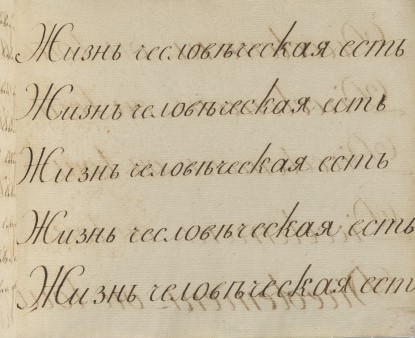 Жизнь чесловѣческая есть
Жизнь человѣческая есть
Жизнь человѣческая есть
Жизнь чесловѣческая есть
Жизнь человѣческая ест